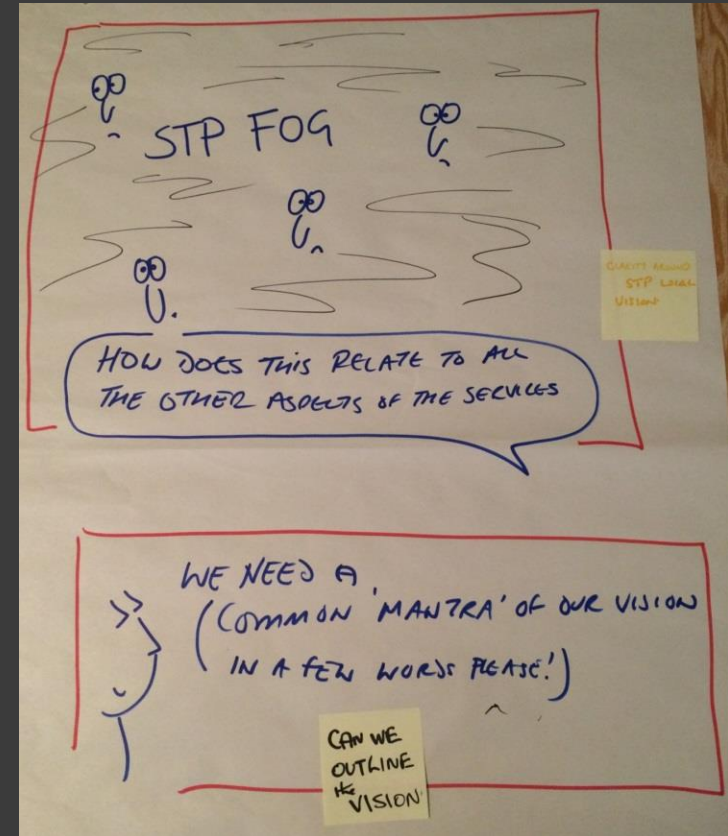 STP FOG
CLARITY AROUND
STP LOCAL
VISION
HOW DOES THIS RELATE TO ALL
THE OTHER ASPECTS OF THE SERVICES
WE NEED A
(COMMON 'MANTRA' OF OUR VISION
IN A FEW WORDS PLEASE!)
CAN WE
OUTLINE
the
VISION